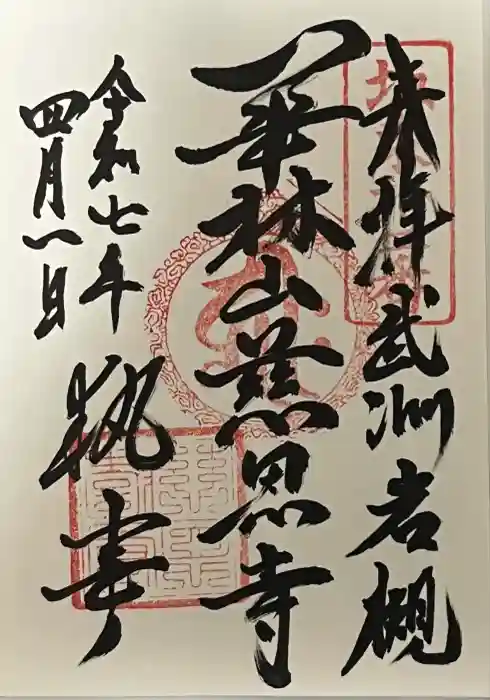 奉拝武洲岩槻
華林山慈恩寺
令和七年
四月一日
執事